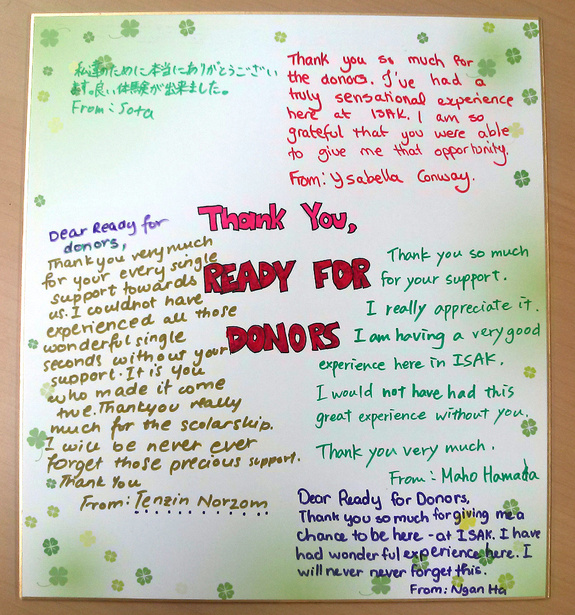 私達のために本当にありがとうござい
ます。良い体験が出来ました。
From: Sota
Thank you so much for
the donors. I've had a
truly sensational experience
here at ISAK. I am so
grateful that you were able
to give me that opportunity.
From: Ysabella Conway.
Thank You,
READY FOR
DONORS
Dear Ready for
donors,
Thank you very much
for your every single
support towards
us. I couldnot have
experienced all those
wonderful single
seconds without your
support. It is you
who made it come
true. Thankyou really
much for the scolarship.
I will be never ever
forget those precious support.
Thank You
From: Tenzin Norzom
Thank you so much
for your support.
I really appreciate it.
I am having a very good
experience here in ISAK.
I would not have had this
great experience without you.
Thank you very much.
From: Maho Hamada
Dear Ready for Donors,
Thank you so much for giving me a
chance to be here - at ISAK. I have
had wonderful experience here. I
will never never forget this.
From: Ngan Ha